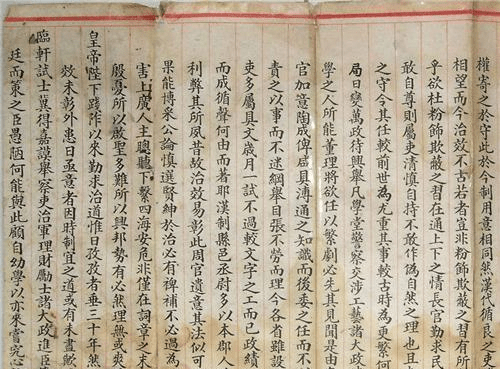 權寄之於守此於今制用意相同然漢代循良之吏
相望而今治效不古若者豈非粉飾欺蔽之習有所
乎欲杜粉飾欺蔽之習在通上下之情長官勤求民
敢自尊則屬吏清慎自持不敢作偽自然之理也且
之守今其任較前世為尤重其事較古時為更繁何
局日變萬政待興舉凡學堂警察交涉工藝諸大政
學之人所能董理將欲任以繁劇必先其見聞是由
官加意陶成俾咸具溥通之知識而後委之任而不
責之以事而不迷綱舉目張不勞而理今各省雖設
吏多屬具文歲月一試不過較文字之工而已政績
而成循聲何由而著耶漢制縣邑丞尉多以本郡人
利弊其所夙昔故治效易彰此周官遺意其法似可
果能博采公論慎選賢紳於治必有裨補不必過為
害上廣人主聰聽下繫四海安危非僅在詞章之末
殷憂所以啟聖多難所以興邦勢有必然理無或爽
皇帝陛下踐阼以來勤求治道惟日孜孜者垂三十年然
效未彰外患日亟意者因時制宜之道或有未盡歟
臨軒試士冀得嘉謨舉察吏治軍理財勵士諸大政進臣
廷而策之臣愚陋何能與此顧自幼學以來嘗究心